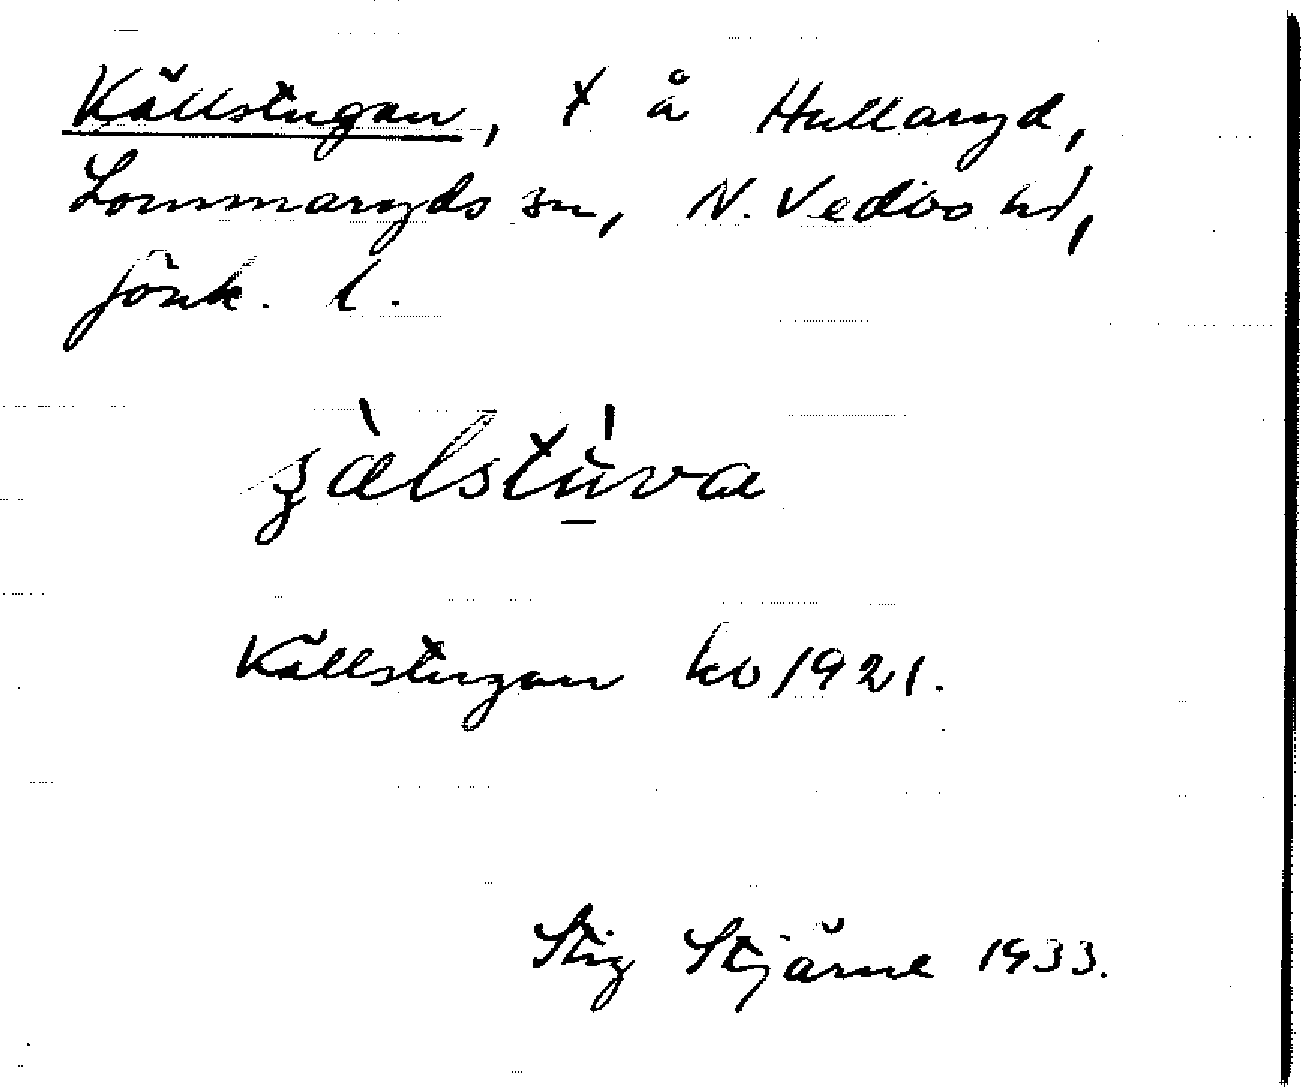 Källstugan, t å Hullaryd,
Lommaryds sn, N. Vedbo hd,
Jönk. l.
Källstugan kb 1921.
Stig Stjärne 1933.